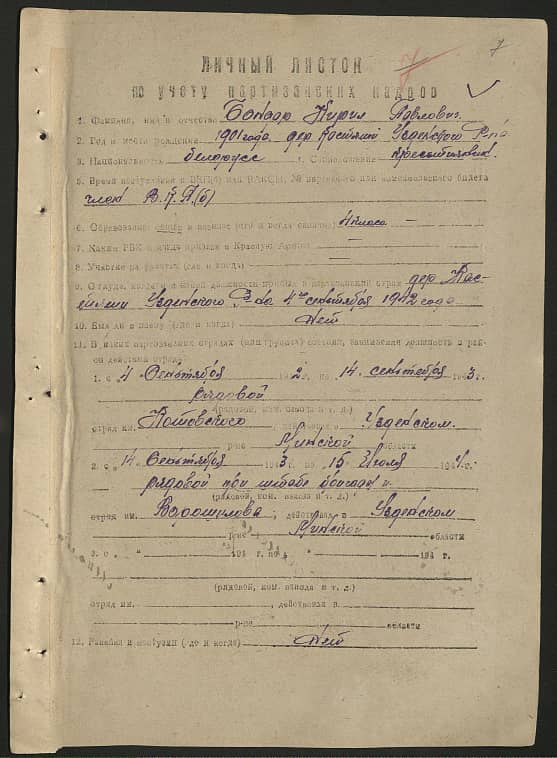 7
7
ЛИЧНЫЙ ЛИСТОК
по учету партизанских кадров
1. Фамилия, имя и отчество Бондар Кирил Павлович.
2. Год и место рождения 1901 года. дер Костюки Узденского р-на
3. Национальность белорусс 4. Соц.положение
5. Время вступления в ВКП(б) или ВЛКСМ, № партийного или комсомольского билета
член В.П.(б)
6. Образование общее и военное (что и когда окончил) 4 класа —
7. Каким РВК и когда призван в Красную Армию —
8. Участие на фронтах (где и когда)
9. Откуда, когда и в какой должности прибыл в партизанский отряд дер
Узденского Р-на 4го сентября 1942 года
10. Был ли в плену (где и когда) Нет
11. В каких партизанских отрядах (или группах) состоял, занимаемая должность и рай-
он действия отряда:
1. с 4 Сентября 1942 г. по 14 сентября 1943 г.
рядовой
(рядовой, ком. взвода и т. д.)
отряд им. Котовского, действовал в Узденском
р-не Минской области
2. с 14 Сентября 1943 г. по 15 Июля 1944 г.
рядовой при штабе бригады и
(рядовой, ком. взвода и т. д.)
отряд им. Ворошилова, действовал в Узденском
р-не Минской области
3. с " " 194 г. по " 194 г.
(рядовой, ком. взвода и т. д.)
отряд им. , действовал в
р-не области
12. Ранения и контузии (где и когда) Нет